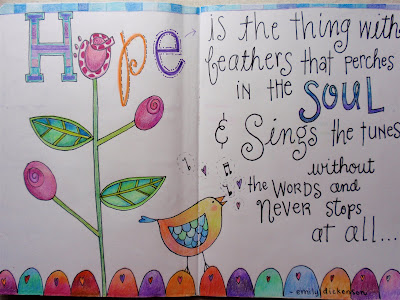 Hope
is the thing with
feathers that perches
in the
SOUL
& Sings the tunes
without
the WORDS and
Never stops
at all...
- emily dickenson -